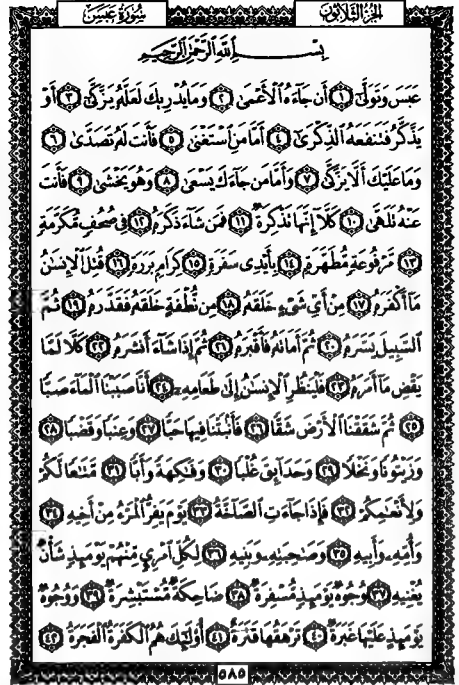 الجزء الثلاثون
سورة عبس
بِسْمِ اللَّهِ الرَّحْمَٰنِ الرَّحِيمِ
عَبَسَ وَتَوَلَّىٰٓ ١ أَن جَآءَهُ ٱلْأَعْمَىٰ ٢ وَمَا يُدْرِيكَ لَعَلَّهُۥ يَزَّكَّىٰٓ ٣ أَوْ
يَذَّكَّرُ فَتَنفَعَهُ ٱلذِّكْرَىٰٓ ٤ أَمَّا مَنِ ٱسْتَغْنَىٰ ٥ فَأَنتَ لَهُۥ تَصَدَّىٰ ٦
وَمَا عَلَيْكَ أَلَّا يَزَّكَّىٰ ٧ وَأَمَّا مَن جَآءَكَ يَسْعَىٰ ٨ وَهُوَ يَخْشَىٰ ٩ فَأَنتَ
عَنْهُ تَلَهَّىٰ ١٠ كَلَّآ إِنَّهَا تَذْكِرَةٌ ١١ فَمَن شَآءَ ذَكَرَهُۥ ١٢ فِى صُحُفٍ مُّكَرَّمَةٍ
١٣ مَّرْفُوعَةٍ مُّطَهَّرَةٍۭ ١٤ بِأَيْدِى سَفَرَةٍ ١٥ كِرَامٍۭ بَرَرَةٍ ١٦ قُتِلَ ٱلْإِنسَٰنُ
مَآ أَكْفَرَهُۥ ١٧ مِنْ أَىِّ شَىْءٍ خَلَقَهُۥ ١٨ مِن نُّطْفَةٍ خَلَقَهُۥ فَقَدَّرَهُۥ ١٩ ثُمَّ
ٱلسَّبِيلَ يَسَّرَهُۥ ٢٠ ثُمَّ أَمَاتَهُۥ فَأَقْبَرَهُۥ ٢١ ثُمَّ إِذَا شَآءَ أَنشَرَهُۥ ٢٢ كَلَّا لَمَّا
يَقْضِ مَآ أَمَرَهُۥ ٢٣ فَلْيَنظُرِ ٱلْإِنسَٰنُ إِلَىٰ طَعَامِهِۦٓ ٢٤ أَنَّا صَبَبْنَا ٱلْمَآءَ صَبًّا
٢٥ ثُمَّ شَقَقْنَا ٱلْأَرْضَ شَقًّا ٢٦ فَأَنۢبَتْنَا فِيهَا حَبًّا ٢٧ وَعِنَبًا وَقَضْبًا ٢٨
وَزَيْتُونًا وَنَخْلًا ٢٩ وَحَدَآئِقَ غُلْبًا ٣٠ وَفَٰكِهَةً وَأَبًّا ٣١ مَّتَٰعًا لَّكُمْ
وَلِأَنْعَٰمِكُمْ ٣٢ فَإِذَا جَآءَتِ ٱلصَّآخَّةُ ٣٣ يَوْمَ يَفِرُّ ٱلْمَرْءُ مِنْ أَخِيهِ ٣٤
وَأُمِّهِۦ وَأَبِيهِ ٣٥ وَصَٰحِبَتِهِۦ وَبَنِيهِ ٣٦ لِكُلِّ ٱمْرِئٍ مِّنْهُمْ يَوْمَئِذٍ شَأْنٌ
يُغْنِيهِ ٣٧ وُجُوهٌ يَوْمَئِذٍ مُّسْفِرَةٌ ٣٨ ضَاحِكَةٌ مُّسْتَبْشِرَةٌ ٣٩ وَوُجُوهٌ
يَوْمَئِذٍ عَلَيْهَا غَبَرَةٌ ٤٠ تَرْهَقُهَا قَتَرَةٌ ٤١ أُو۟لَٰٓئِكَ هُمُ ٱلْكَفَرَةُ ٱلْفَجَرَةُ ٤٢
٥٨٥